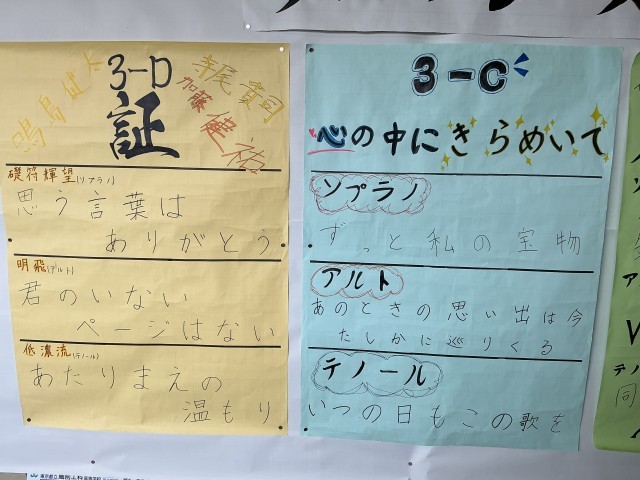 3-D
証
寺尾貴司
加藤健祐
礎符輝望(ソプラノ)
思う言葉は
ありがとう
明飛(アルト)
君のいない
ページはない
低濃流(テノール)
あたりまえの
温もり
3-C
心の中にきらめいて
ソプラノ
ずっと私の宝物
アルト
あのときの思い出は今
たしかに巡りくる
テノール
いつの日もこの歌を